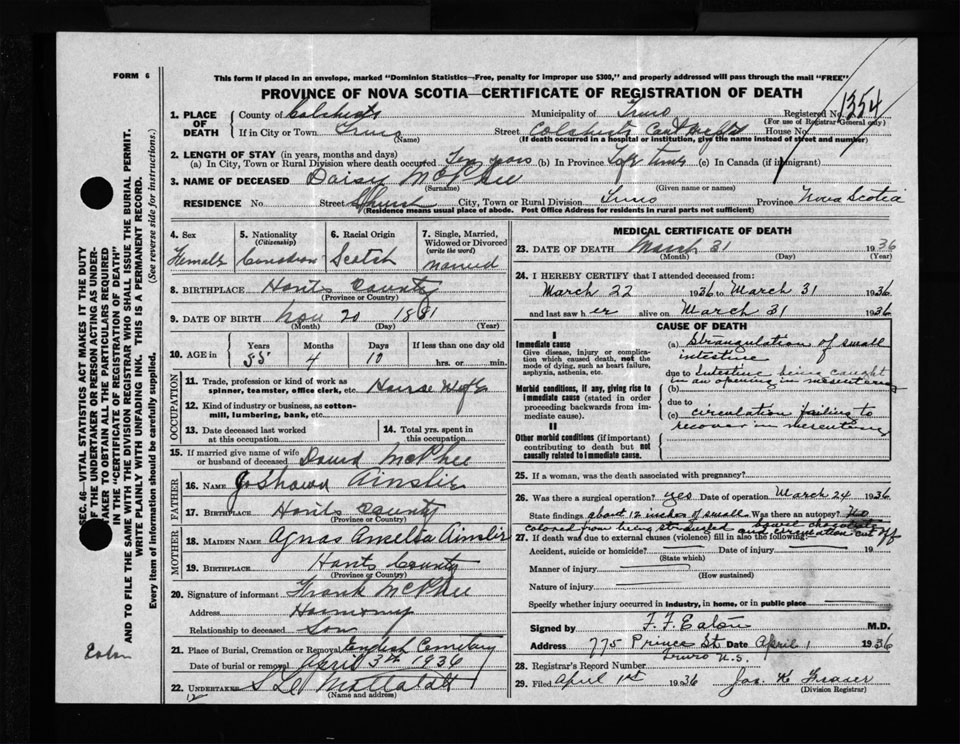 FORM 6
This form if placed in an envelope, marked "Dominion Statistics—Free, penalty for improper use $300," and properly addressed will pass through the mail "FREE"
PROVINCE OF NOVA SCOTIA—CERTIFICATE OF REGISTRATION OF DEATH
1. PLACE OF DEATH
County of Colchester Municipality of Truro Registered No. 1354
(For use of Registrar General only)
If in City or Town Truro Street Colchester House No.
(Name) (If death occurred in a hospital or institution, give the name instead of street and number)
2. LENGTH OF STAY (in years, months and days)
(a) In City, Town or Rural Division where death occurred Ten years (b) In Province Life time (c) In Canada (if immigrant)
3. NAME OF DECEASED Daisy McPhee
(Surname) (Given name or names)
RESIDENCE No Street Church City, Town or Rural Division Truro Province Nova Scotia
(Residence means usual place of abode. Post Office Address for residents in rural parts not sufficient)
4. Sex Female
5. Nationality (Citizenship) Canadian
6. Racial Origin Scotch
7. Single, Married, Widowed or Divorced (write the word) Married
8. BIRTHPLACE Hants County
(Province or Country)
9. DATE OF BIRTH Nov 20 1881
(Month) (Day) (Year)
10. AGE in Years Months Days If less than one day old
55 4 10 hrs. or min.
OCCUPATION
11. Trade, profession or kind of work as spinner, teamster, office clerk, etc. House Wife
12. Kind of industry or business, as cotton-mill, lumbering, bank, etc.
13. Date deceased last worked at this occupation
14. Total yrs. spent in this occupation
15. If married give name of wife or husband of deceased David McPhee
FATHER
16. Name Ainslie
17. Birthplace Hants County
(Province or Country)
MOTHER
18. Maiden Name Agnas Ainslie
19. Birthplace Hants County
(Province or Country)
20. Signature of informant Frank McPhee
Address Harmony
Relationship to deceased Son
21. Place of Burial, Cremation or Removal English Cemetary
Date of burial or removal April 3rd 1936
22. Undertaker
(Name and address)
12
MEDICAL CERTIFICATE OF DEATH
23. DATE OF DEATH March 31 1936
(Month) (Day) (Year)
24. I HEREBY CERTIFY that I attended deceased from:
March 22 1936 to March 31 1936
and last saw h er alive on March 31 1936
CAUSE OF DEATH
I
Immediate cause
Give disease, injury or complication which caused death, not the mode of dying, such as heart failure, asphyxia, asthenia, etc.
(a) Strangulation of small intestine
due to
Morbid conditions, if any, giving rise to immediate cause (stated in order proceeding backwards from immediate cause).
(b) Intestine being caught in an opening in mesentery
due to
(c) circulation failing to recover in mesentery
II
Other morbid conditions (if important) contributing to death but not causally related to immediate cause.
25. If a woman, was the death associated with pregnancy?
26. Was there a surgical operation? yes Date of operation March 24 1936
State findings about 12 inches of small bowel chocolate Was there an autopsy? No
colored from being strangled circulation cut off
27. If death was due to external causes (violence) fill in also the following:
Accident, suicide or homicide? Date of injury 19
(State which)
Manner of injury
(How sustained)
Nature of injury
Specify whether injury occurred in industry, in home, or in public place
Signed by F. F. Eaton M.D.
Address 775 Prince St Date April 1 1936
Truro N.S.
28. Registrar's Record Number
29. Filed April 1st 1936 Jas. K Fraser
(Division Registrar)
SEC. 46—VITAL STATISTICS ACT MAKES IT THE DUTY
OF THE UNDERTAKER OR PERSON ACTING AS UNDERTAKER TO OBTAIN ALL THE PARTICULARS REQUIRED
IN THE "CERTIFICATE OF REGISTRATION OF DEATH"
AND TO FILE THE SAME WITH THE DIVISION REGISTRAR WHO SHALL ISSUE THE BURIAL PERMIT.
WRITE PLAINLY WITH UNFADING INK. THIS IS A PERMANENT RECORD.
Every item of information should be carefully supplied. (See reverse side for instructions.)